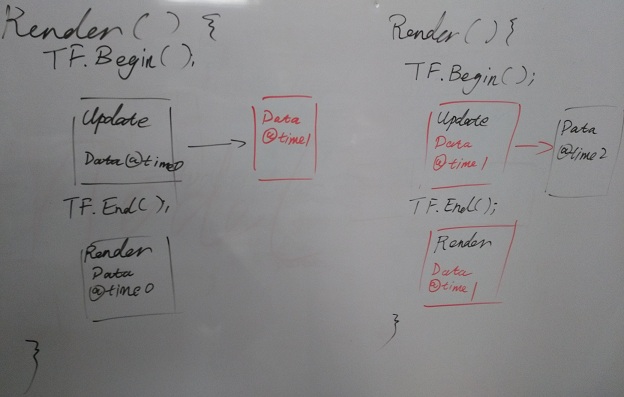 Render() {
TF.Begin();
Update
Data@time0
Data
@time1
TF.End();
Render
Data
@time0
}
Render() {
TF.Begin();
Update
Data
@time1
Data
@time2
TF.End();
Render
Data
@time1
}